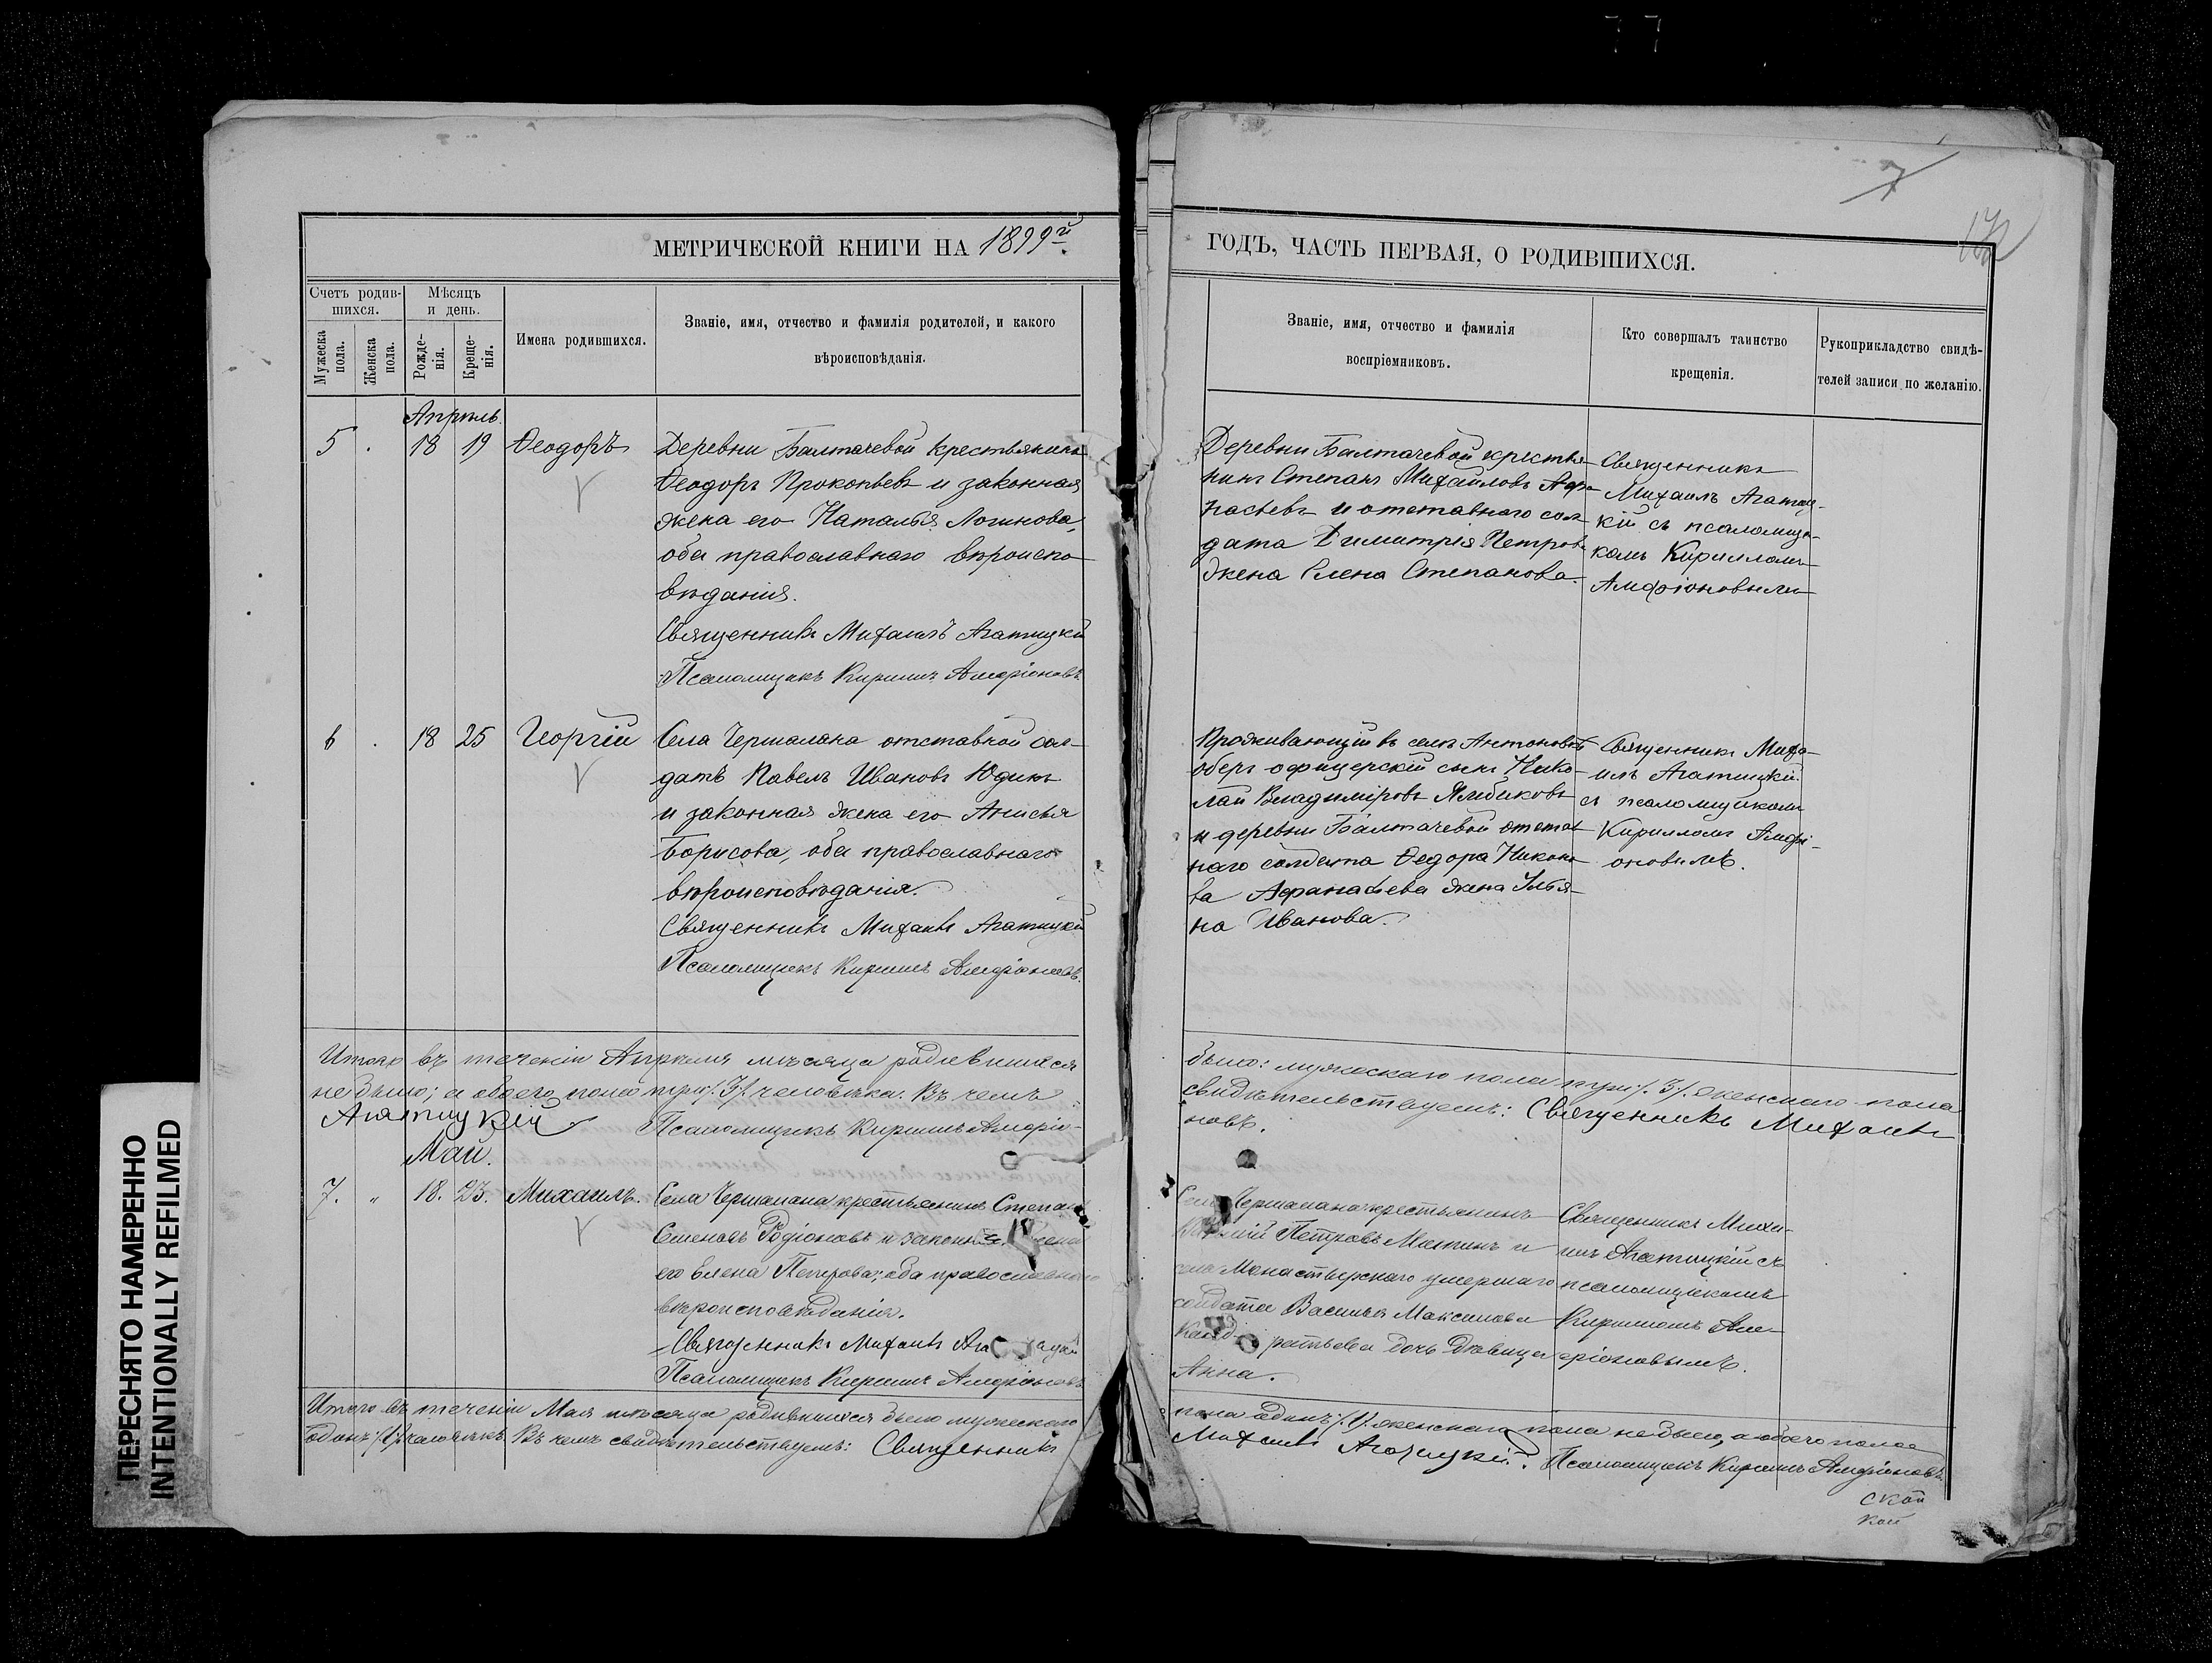 7
172
МЕТРИЧЕСКОЙ КНИГИ НА 1899й
ГОДЪ, ЧАСТЬ ПЕРВАЯ, О РОДИВШИХСЯ.
Счетъ родив-
шихся.
Мужеска
пола.
Женска
пола.
Мѣсяцъ
и день.
Рожде-
нія.
Креще-
нія.
Имена родившихся.
Званіе, имя, отчество и фамилія родителей, и какого
вѣроисповѣданія.
Званіе, имя, отчество и фамилія
воспріемниковъ.
Кто совершалъ таинство
крещенія.
Рукоприкладство свидѣ-
телей записи по желанію.
Апрѣль
5 . 18 19 Ѳеодоръ
Деревни Балтачевой крестьянинъ
Ѳеодоръ Прокопьевъ и законная
жена его Наталья Логинова,
оба православнаго вѣроиспо-
вѣданія.
Священникъ Михаилъ Агатицкій
Псаломщикъ Кириллъ Амфіоновъ
Деревни Балтачевой крестья-
нинъ Степанъ Михайловъ Афа-
насьевъ и отставнаго сол-
дата Димитрія Петрова
жена Елена Степанова.
Священникъ
Михаилъ Агатиц-
кій съ псаломщи-
комъ Кирилломъ
Амфіоновымъ
6 . 18 25 Георгій
Села Чершалана отставной сол-
датъ Павелъ Ивановъ Юдинъ
и законная жена его Анисья
Борисова, оба православнаго
вѣроисповѣданія.
Священникъ Михаилъ Агатицкій
Псаломщикъ Кириллъ Амфіоновъ.
Проживающій въ селѣ Антоновкѣ
оберъ офицерскій сынъ Нико-
лай Владиміровъ
и деревни Балтачевой отстав-
наго солдата Ѳедора Никоно-
ва Афанасьева жена Улья-
на Иванова.
Священникъ Миха-
илъ Агатицкій
съ псаломщикомъ
Кирилломъ Амфі-
оновымъ.
Итого въ теченіи Апрѣля мѣсяца родившихся
было: мужескаго пола три /3/. женскаго пола
не было; а обоего пола три /3/ человѣка. Въ чемъ
свидѣтельствуемъ: Священникъ Михаилъ
Агатицкій. Псаломщикъ Кириллъ Амфіо-
новъ.
Май.
7. „ 18. 23. Михаилъ.
Села Чершалана крестьянинъ Степанъ
Семеновъ Родіоновъ и законная жена
его Елена Петрова; оба православнаго
вѣроисповѣданія.
Священникъ Михаилъ
Псаломщикъ Кириллъ Амфіоновъ
Села Чершалана крестьянинъ
Петровъ и
села Монастырскаго умершаго
солдата Василья Максимова
Кондратьева дочь дѣвица
Анна.
Священникъ Миха-
илъ Агатицкій съ
псаломщикомъ
Кирилломъ Ам-
фіоновымъ.
Итого въ теченіи Мая мѣсяца родившихся было мужескаго
пола одинъ /1/. женскаго пола не было, а обоего пола
одинъ /1/ человѣкъ. Въ чемъ свидѣтельствуемъ: Священникъ
Михаилъ Агатицкій. Псаломщикъ Кириллъ Амфіоновъ
ской
кой
ПЕРЕСНЯТО НАМЕРЕННО
INTENTIONALLY REFILMED